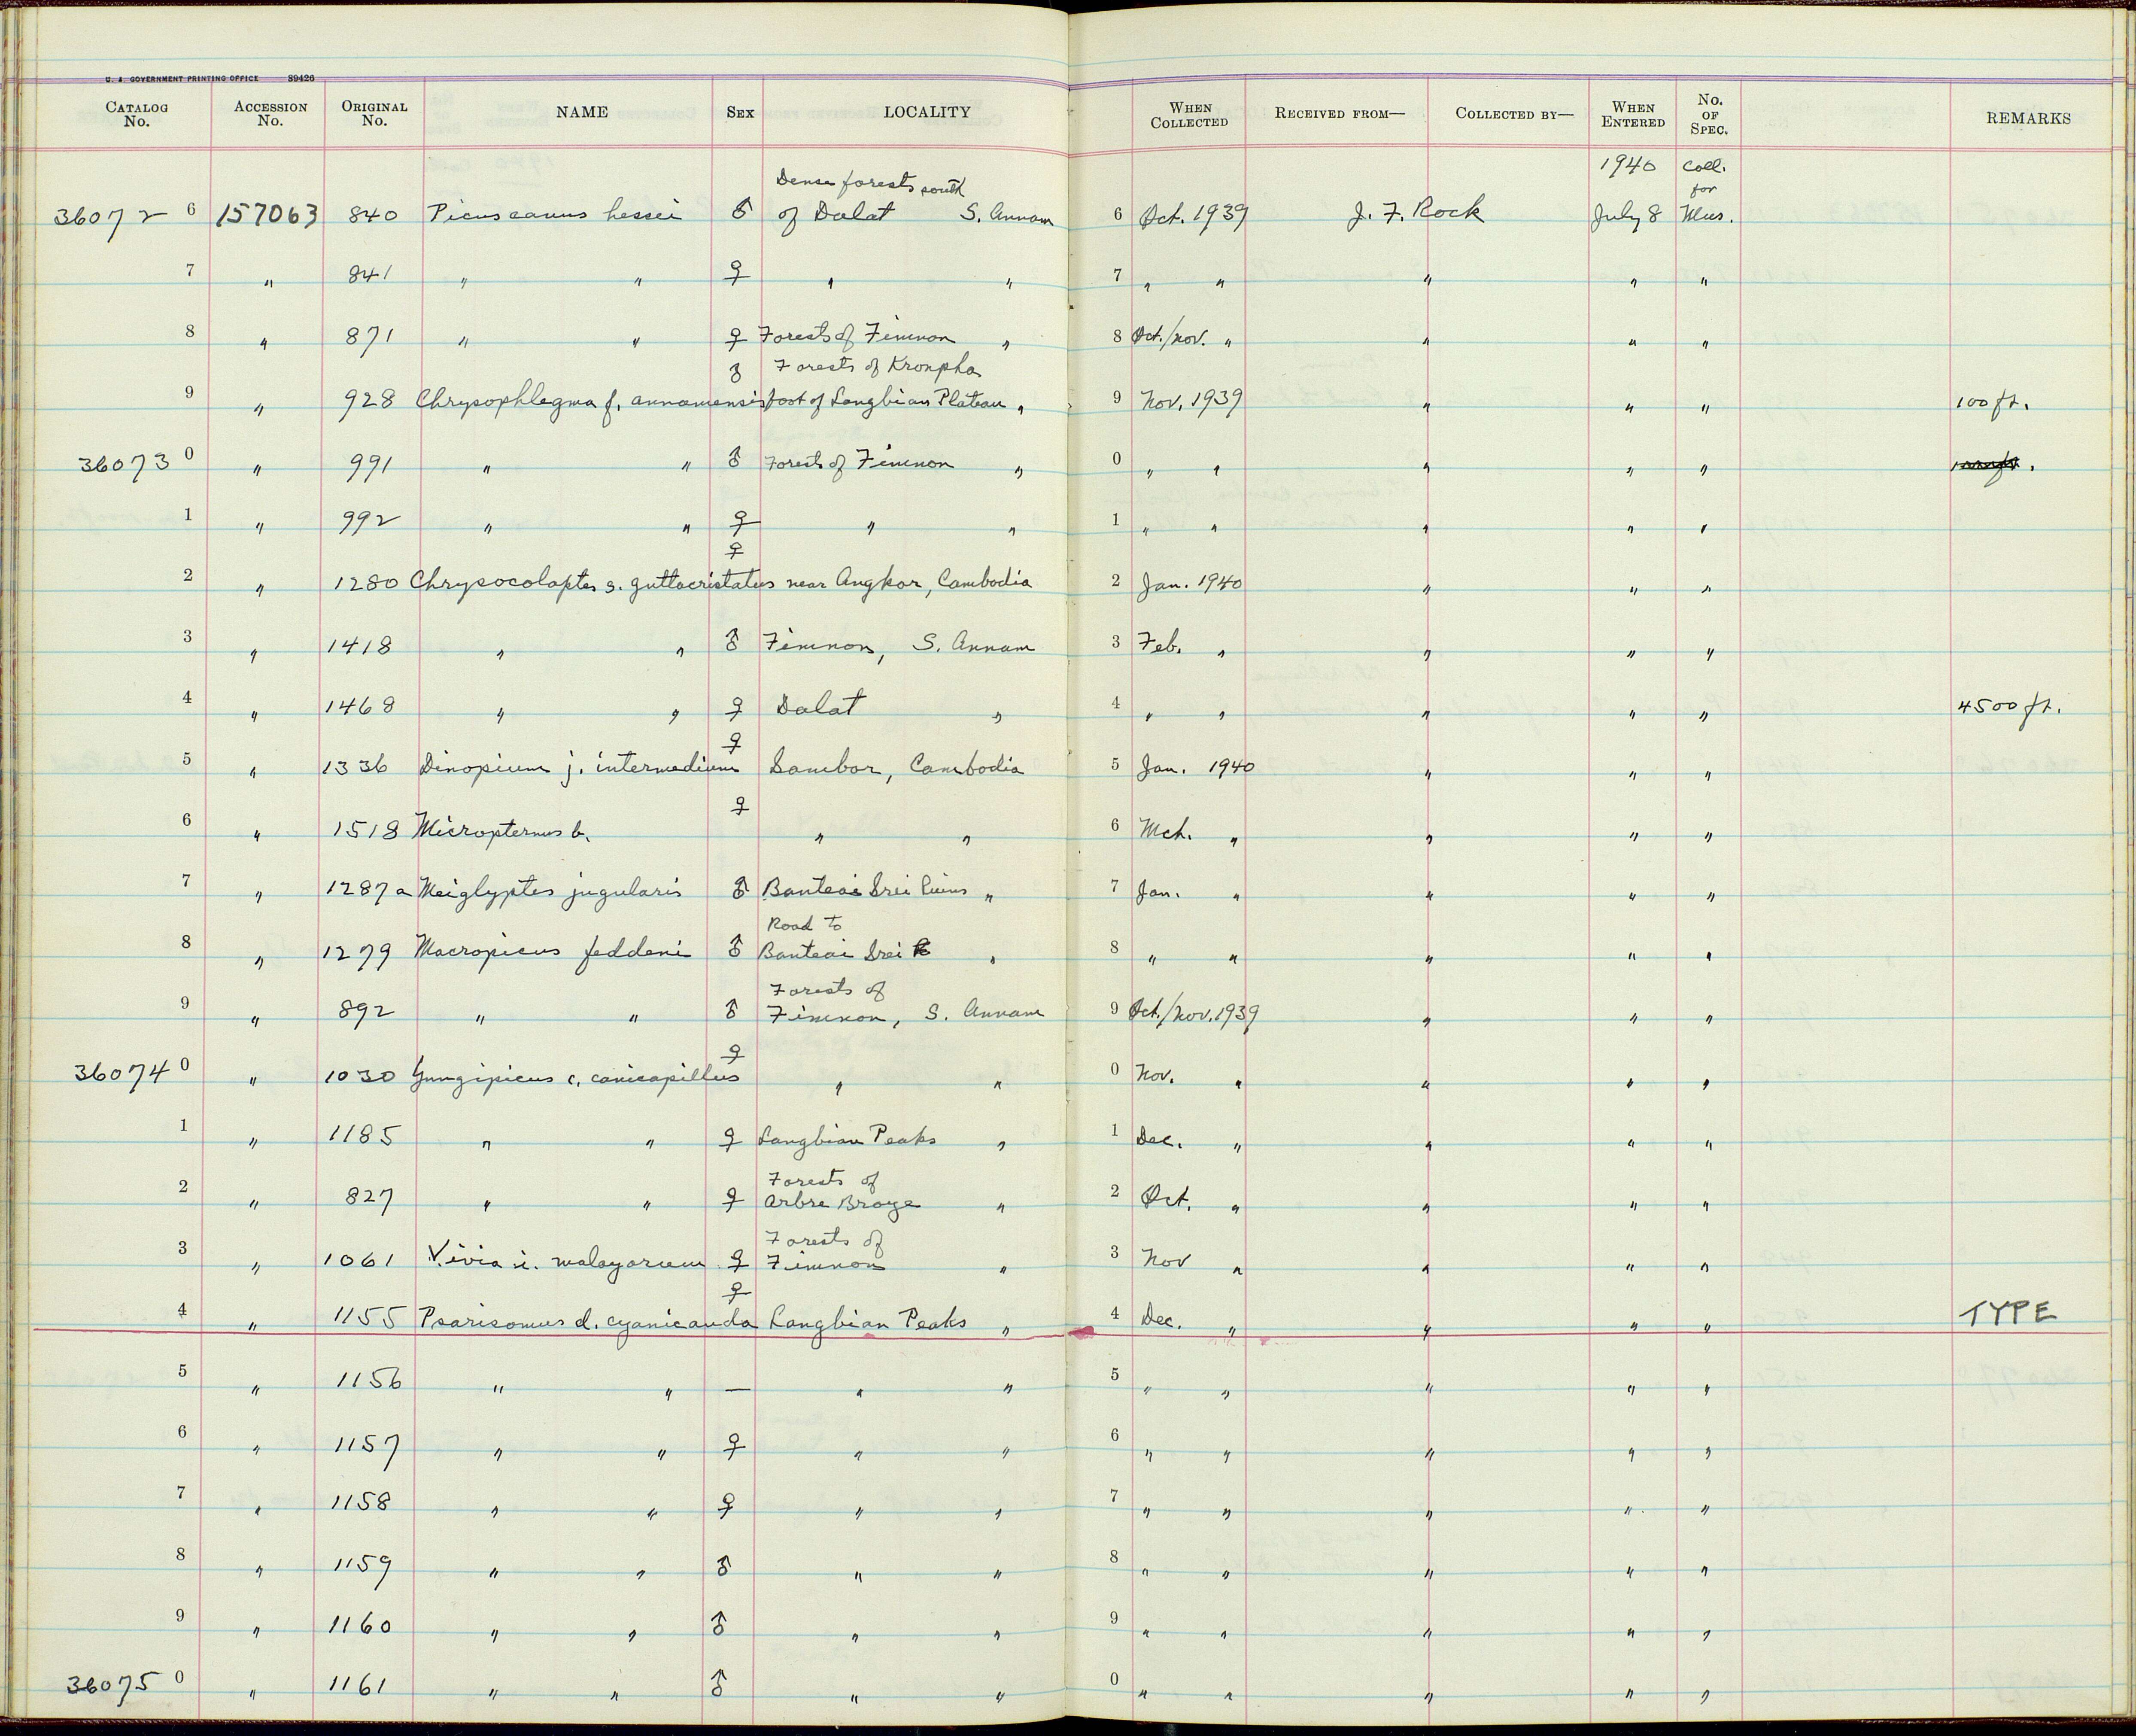 U. S. GOVERNMENT PRINTING OFFICE 89426
CATALOG No. ACCESSION No. ORIGINAL No. NAME SEX LOCALITY WHEN COLLECTED RECEIVED FROM— COLLECTED BY— WHEN ENTERED No. OF SPEC. REMARKS
Dense forests south 1940 Coll. for
36072 6 157063 840 Picus canus hessei ♂ of Dalat S. Annam 6 Oct. 1939 J. F. Rock July 8 Mus.
7 " 841 " " ♀ " " 7 " " " " "
8 " 871 " " ♀ Forests of Fimnon " 8 Oct./Nov. " " " "
♂ Forests of Kronpha
9 " 928 Chrysophlegma f. annamensis foot of Langbian Plateau " 9 Nov. 1939 " " " 100 ft.
36073 0 " 991 " " ♂ Forests of Fimnon " 0 " " " " "
1 " 992 " " ♀ " " 1 " " " " "
♀
2 " 1280 Chrysocolaptes g. guttacristatus near Angkor, Cambodia 2 Jan. 1940 " " "
3 " 1418 " " ♂ Fimnon, S. Annam 3 Feb. " " " "
4 " 1468 " " ♀ Dalat " 4 " " " " " 4500 ft.
♀
5 " 1336 Dinopium j. intermedium Sambor, Cambodia 5 Jan. 1940 " " "
♀
6 " 1518 Micropternus b. " " 6 Mch. " " " "
7 " 1287a Meiglyptes jugularis ♂ Banteai Srei Ruins " 7 Jan. " " " "
Road to
8 " 1279 Macropicus feddeni ♂ Banteai Srei " 8 " " " " "
Forests of
9 " 892 " " ♂ Fimnon, S. Annam 9 Oct./Nov. 1939 " " "
♀
36074 0 " 1030 Yungipicus c. canicapillus " " 0 Nov. " " " "
1 " 1185 " " ♀ Langbian Peaks " 1 Dec. " " " "
Forests of
2 " 827 " " ♀ Arbre Broye " 2 Oct. " " " "
Forests of
3 " 1061 Vivia i. malayorum ♀ Fimnon " 3 Nov " " " "
♀
4 " 1155 Psarisomus d. cyanicauda Langbian Peaks " 4 Dec. " " " " TYPE
5 " 1156 " " — " " 5 " " " " "
6 " 1157 " " ♀ " " 6 " " " " "
7 " 1158 " " ♀ " " 7 " " " " "
8 " 1159 " " ♂ " " 8 " " " " "
9 " 1160 " " ♂ " " 9 " " " " "
36075 0 " 1161 " " ♂ " " 0 " " " " "